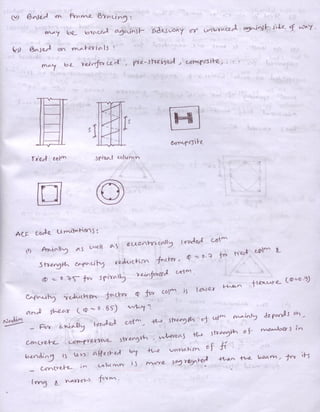 (v) Based on Frame Bracing:
may be braced against sidesway or unbraced against side of way.
(vi) Based on materials:
may be reinforced, pre-stressed, composite, ....
Tied colm
spiral column
composite
S
S
ACI Code Limitations:
(i) Axially as well as eccentrically loaded colm
Strength capacity reduction factor, Φ = 0.7 for tied colm &
Φ = 0.75 for spirally reinforced colm
Capacity reduction factor Φ for colm is lower than flexure (Φ=0.9)
and shear (Φ=0.85) why?
- For axially loaded colm, the strength of colm mainly depends on
concrete compressive strength, whereas the strength of members in
bending is less affected by the variation of
- concrete in column is more segregated than the beam, for its
long & narrow form.